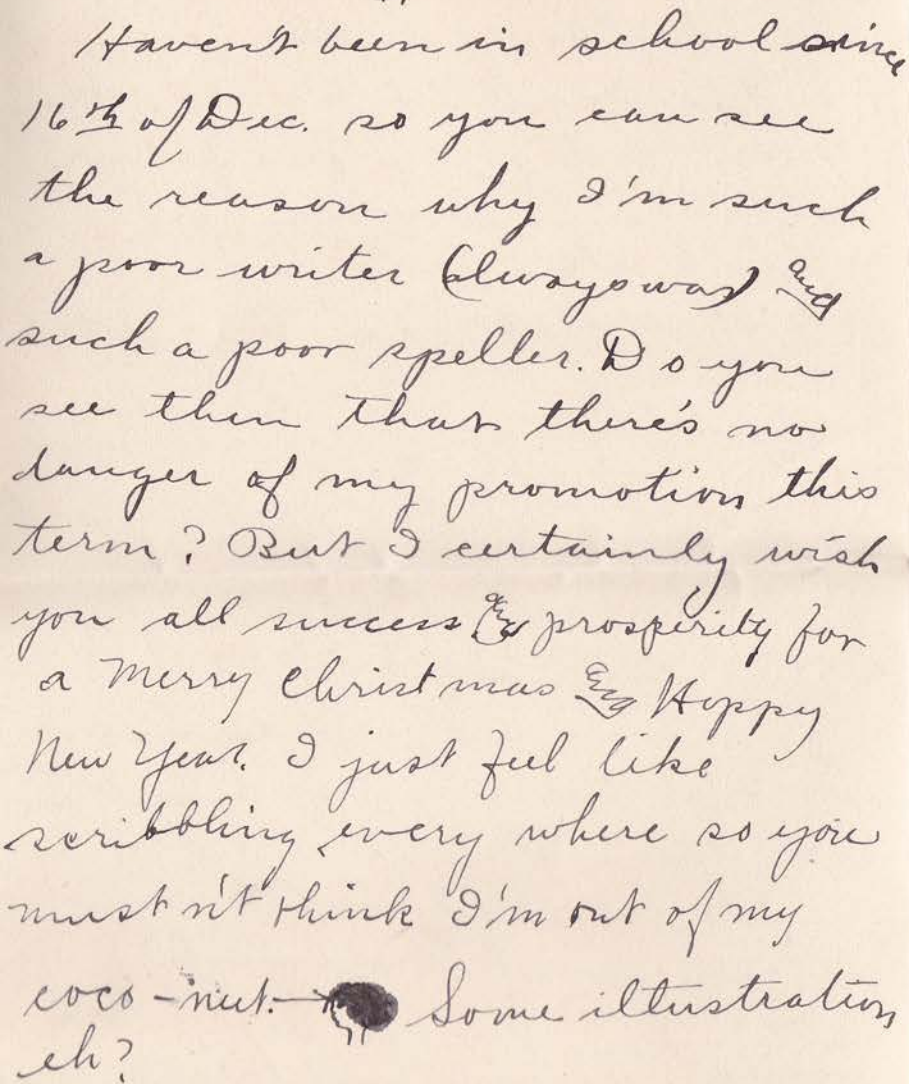 Haven't been in school since
16th of Dec. so you can see
the reason why I'm such
a poor writer (always was) and
such a poor speller. Do you
see then that there's no
danger of my promotion this
term? But I certainly wish
you all success & prosperity for
a Merry Christmas and Happy
New Year. I just feel like
scribbling every where so you
must n't think I'm out of my
coco-nut. Some illustration
eh?